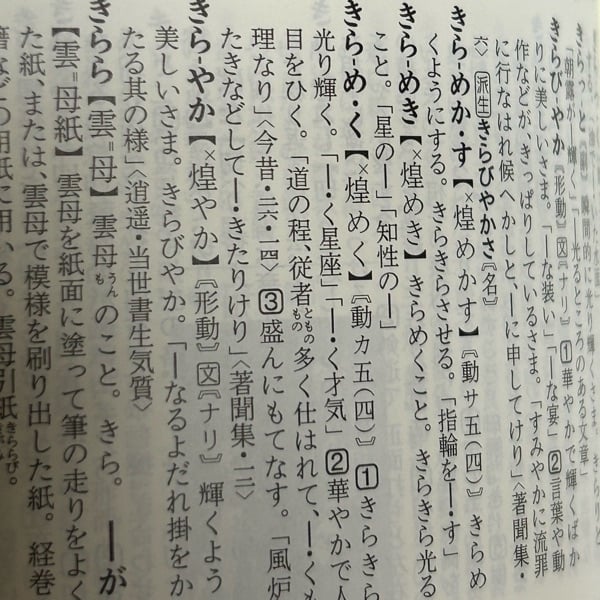 きらっと【副】瞬間的に光り輝くさま。きらりと
「朝露が―輝く」「―光るところのある文章」
きらび‐やか『形動』文『ナリ』①華やかで輝くばか
りに美しいさま。「―な装い」「―な宴」②言葉や動
作などが、きっぱりしているさま。「すみやかに流罪
に行なはれ候へかしと、―に申してけり」〈著聞集・
六〉派生きらびやかさ『名』
きら‐めか・す【×煌めかす】『動サ五(四)』きらめ
くようにする。きらきらさせる。「指輪を―・す」
きら‐めき【×煌めき】きらめくこと。きらきら光る
こと。「星の―」「知性の―」
きら‐め・く【×煌めく】『動カ五(四)』①きらきら
光り輝く。「―・く星座」「―・く才気」②華やかで人
目をひく。「道の程、従者とももの多く仕はれて、―・くも
理なり」〈今昔・二六・一四〉③盛んにもてなす。「風炉
たきなどして―・きたりけり」〈著聞集・一二〉
きら‐やか【×煌やか】『形動』文『ナリ』輝くよう
美しいさま。きらびやか。「―なるよだれ掛をか
たる其の様」〈逍遥・当世書生気質〉
きらら【雲=母】雲母うんものこと。きら。―が
【雲=母紙】雲母を紙面に塗って筆の走りをよく
た紙、または、雲母で模様を刷り出した紙。経巻
籍などの用紙に用いる。雲母引紙きららび。